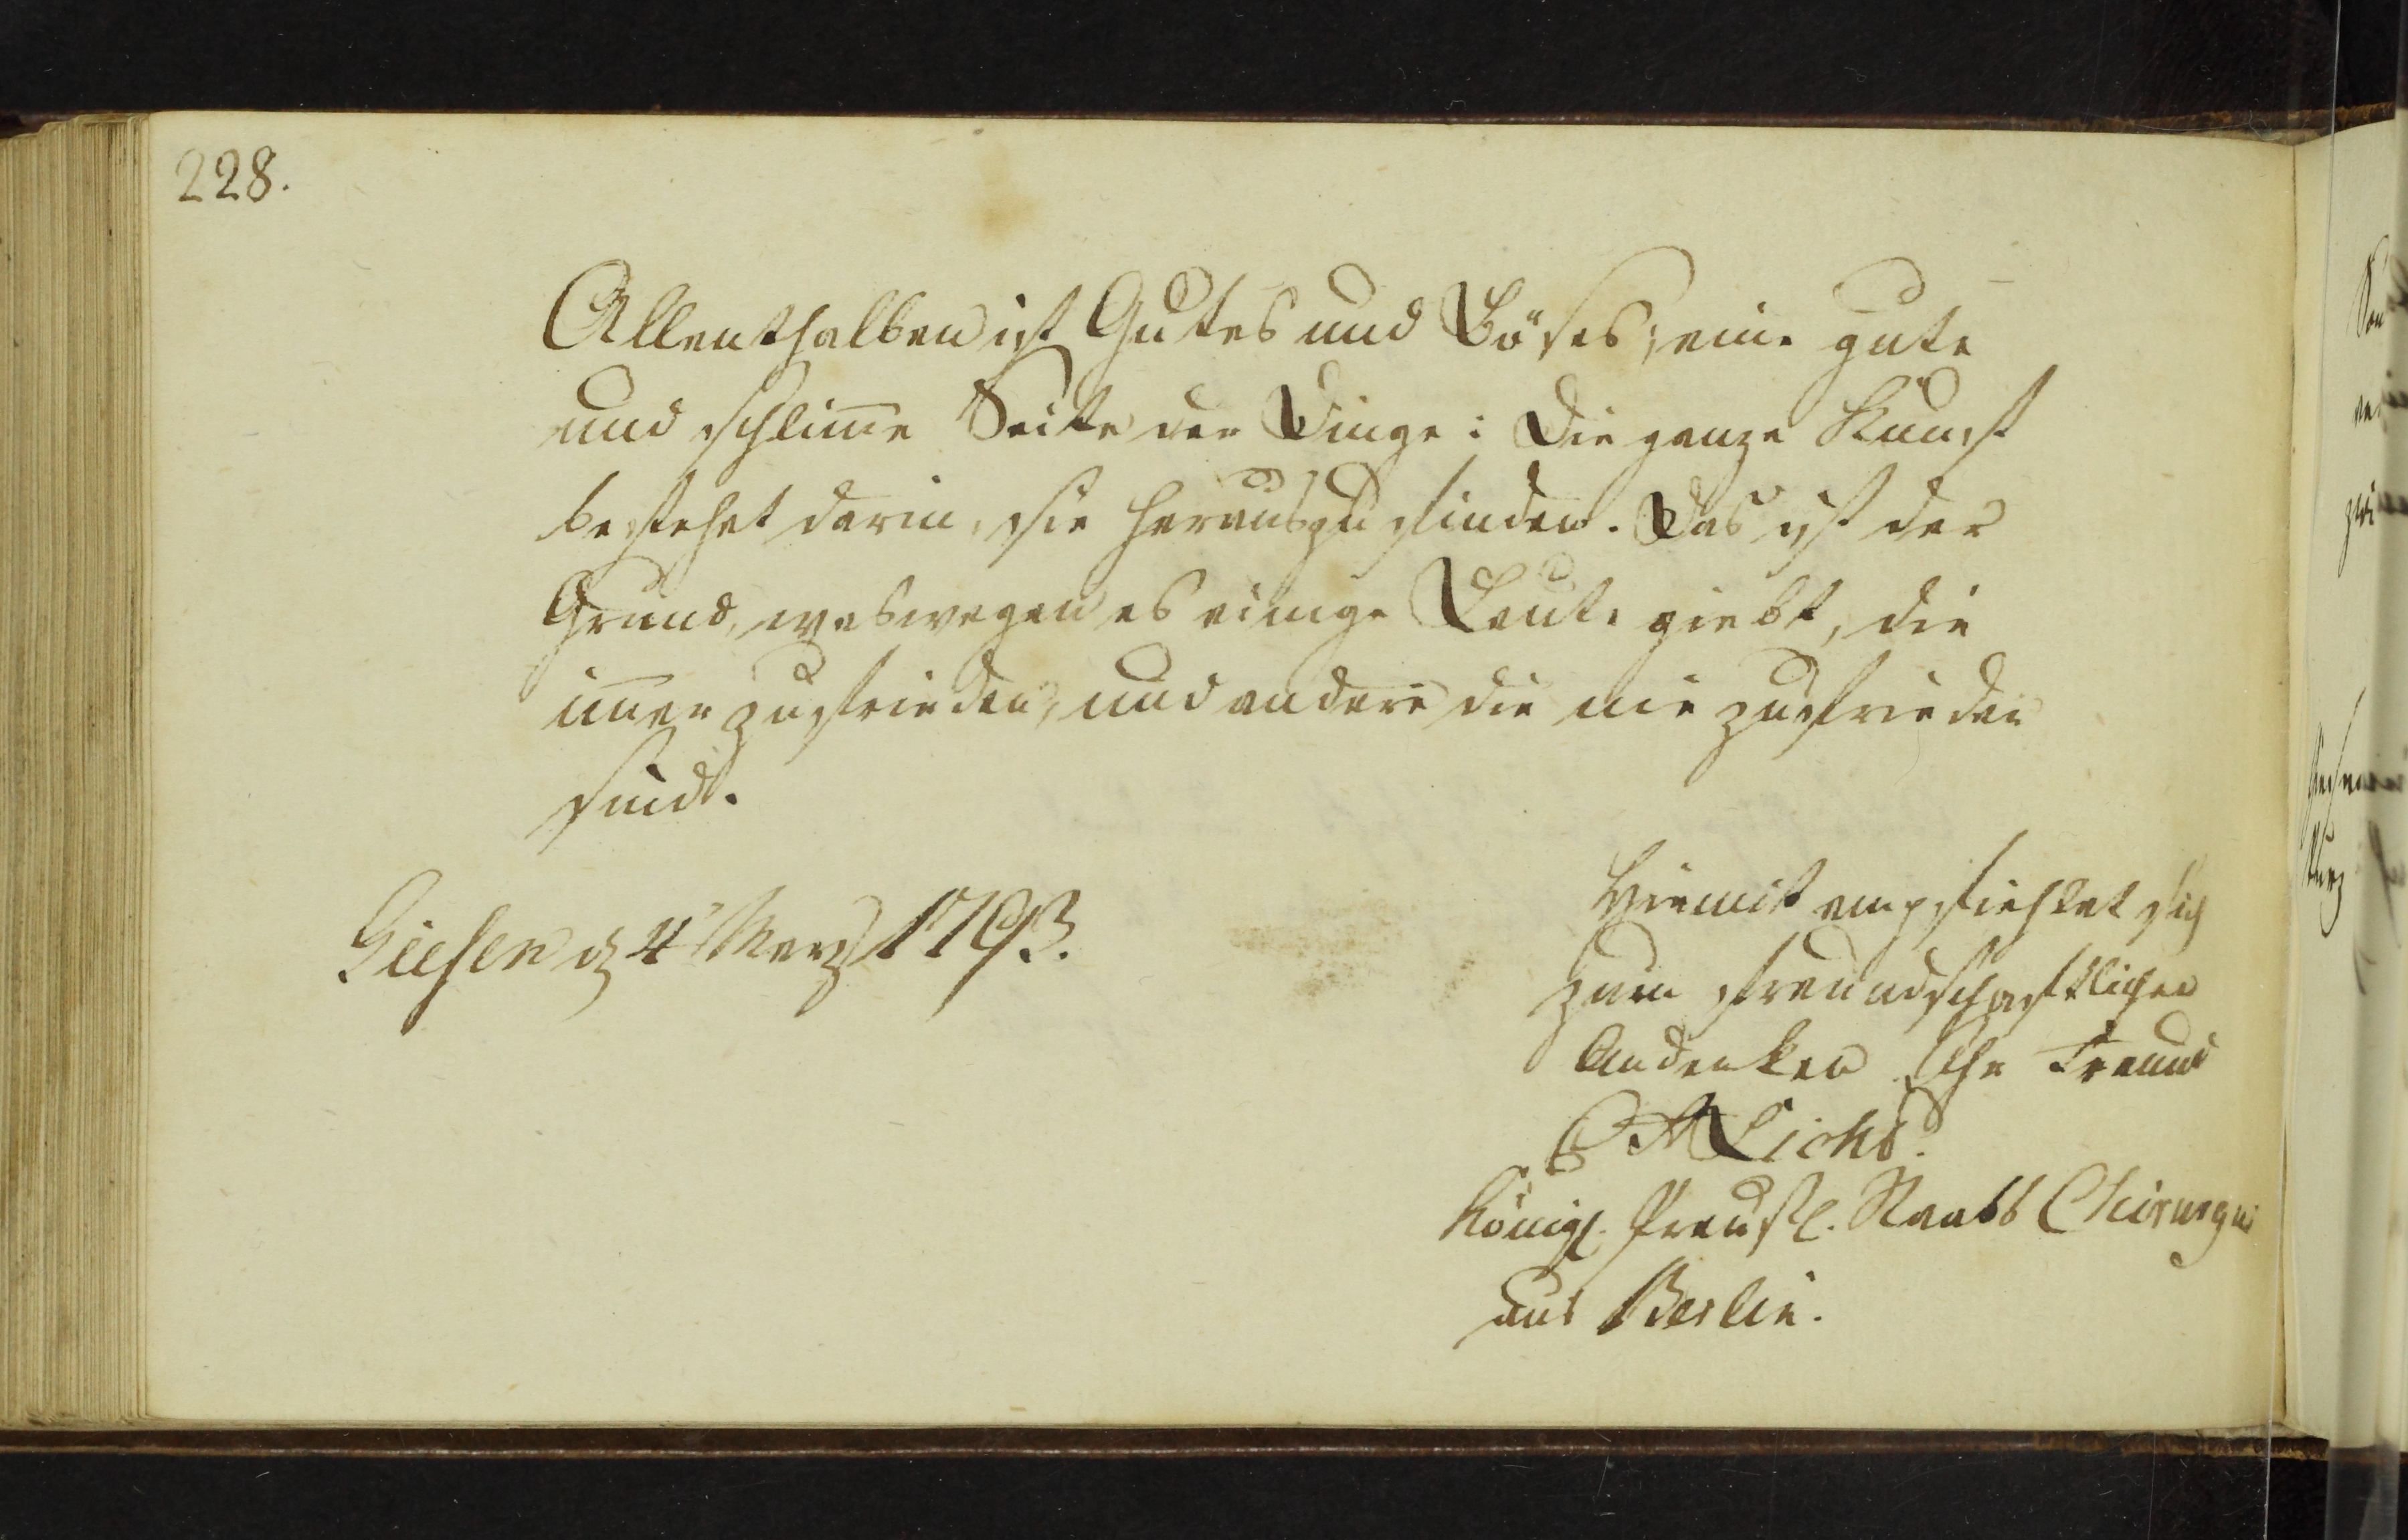 228.
Allenthalben ist Gutes und Böses; eine gute
und schlim̄e Seite der Dinge: Die ganze Kunst
bestehet darin, sie herauszufinden. Das ist der
Grund, weswegen es einige Leute giebt, die
im̄er zufrieden, und andere die nie zufrieden
sind.
Giesen d 4 Merz 1793.
Hiemit empfiehlet sich
zum freundschaftlichen
Andenken Ihr Freund
Königl. Preußl. Staabs Chirurgus
aus Berlin.